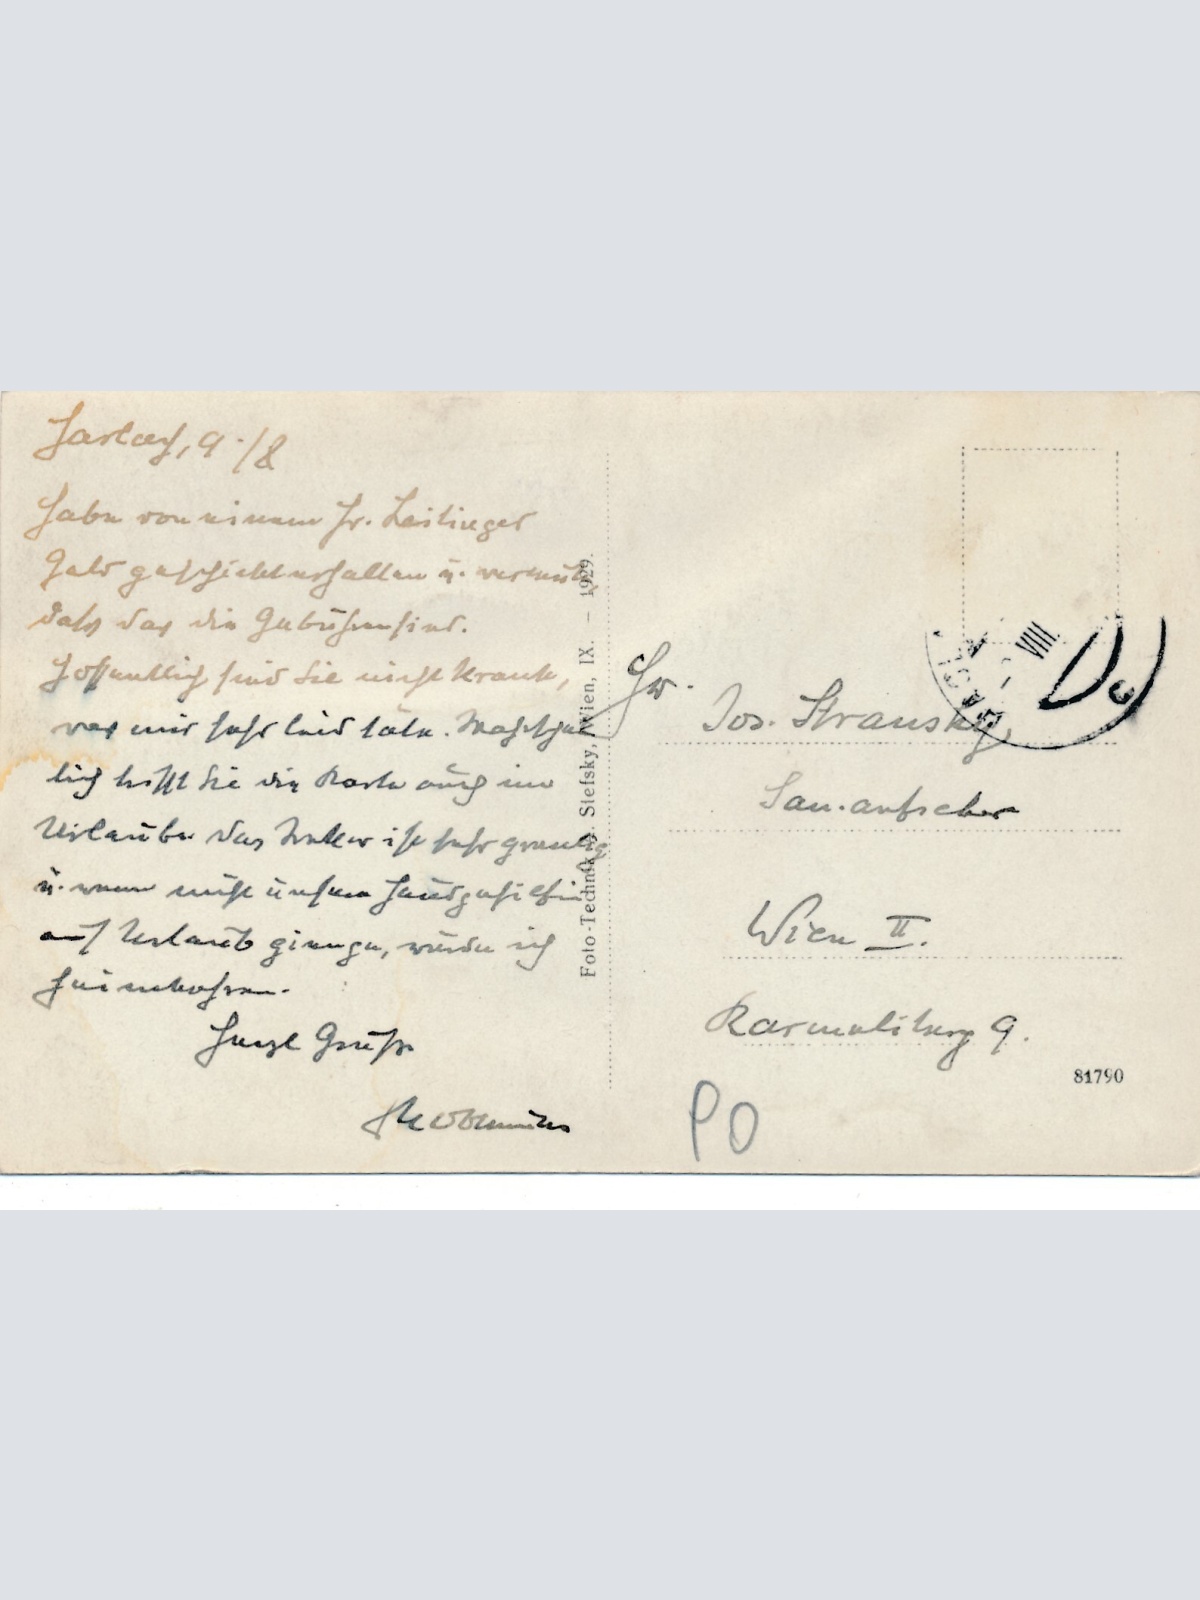 Harlach, 9./8
Habe von einem Hr. Leitinger
Geld geschickt erhalten u. vermute,
daß das die Gebühren sind.
Hoffentlich sind Sie nicht krank,
was mir sehr leid täte. Wahrschein
lich trifft Sie die Karte auch im
Urlaube. Das Wetter ist sehr grauslig
u. wenn nicht unsere Hausgehilfin
auf Urlaub ginge, würde ich
heimkehren.
Herzl Grüße
Hr.
Jos. Stransky,
San.aufseher
Wien II.
Karmeliterg 9.
81790
PO
Foto-Technik A. Stefsky, Wien, IX. – 1929.
VIII